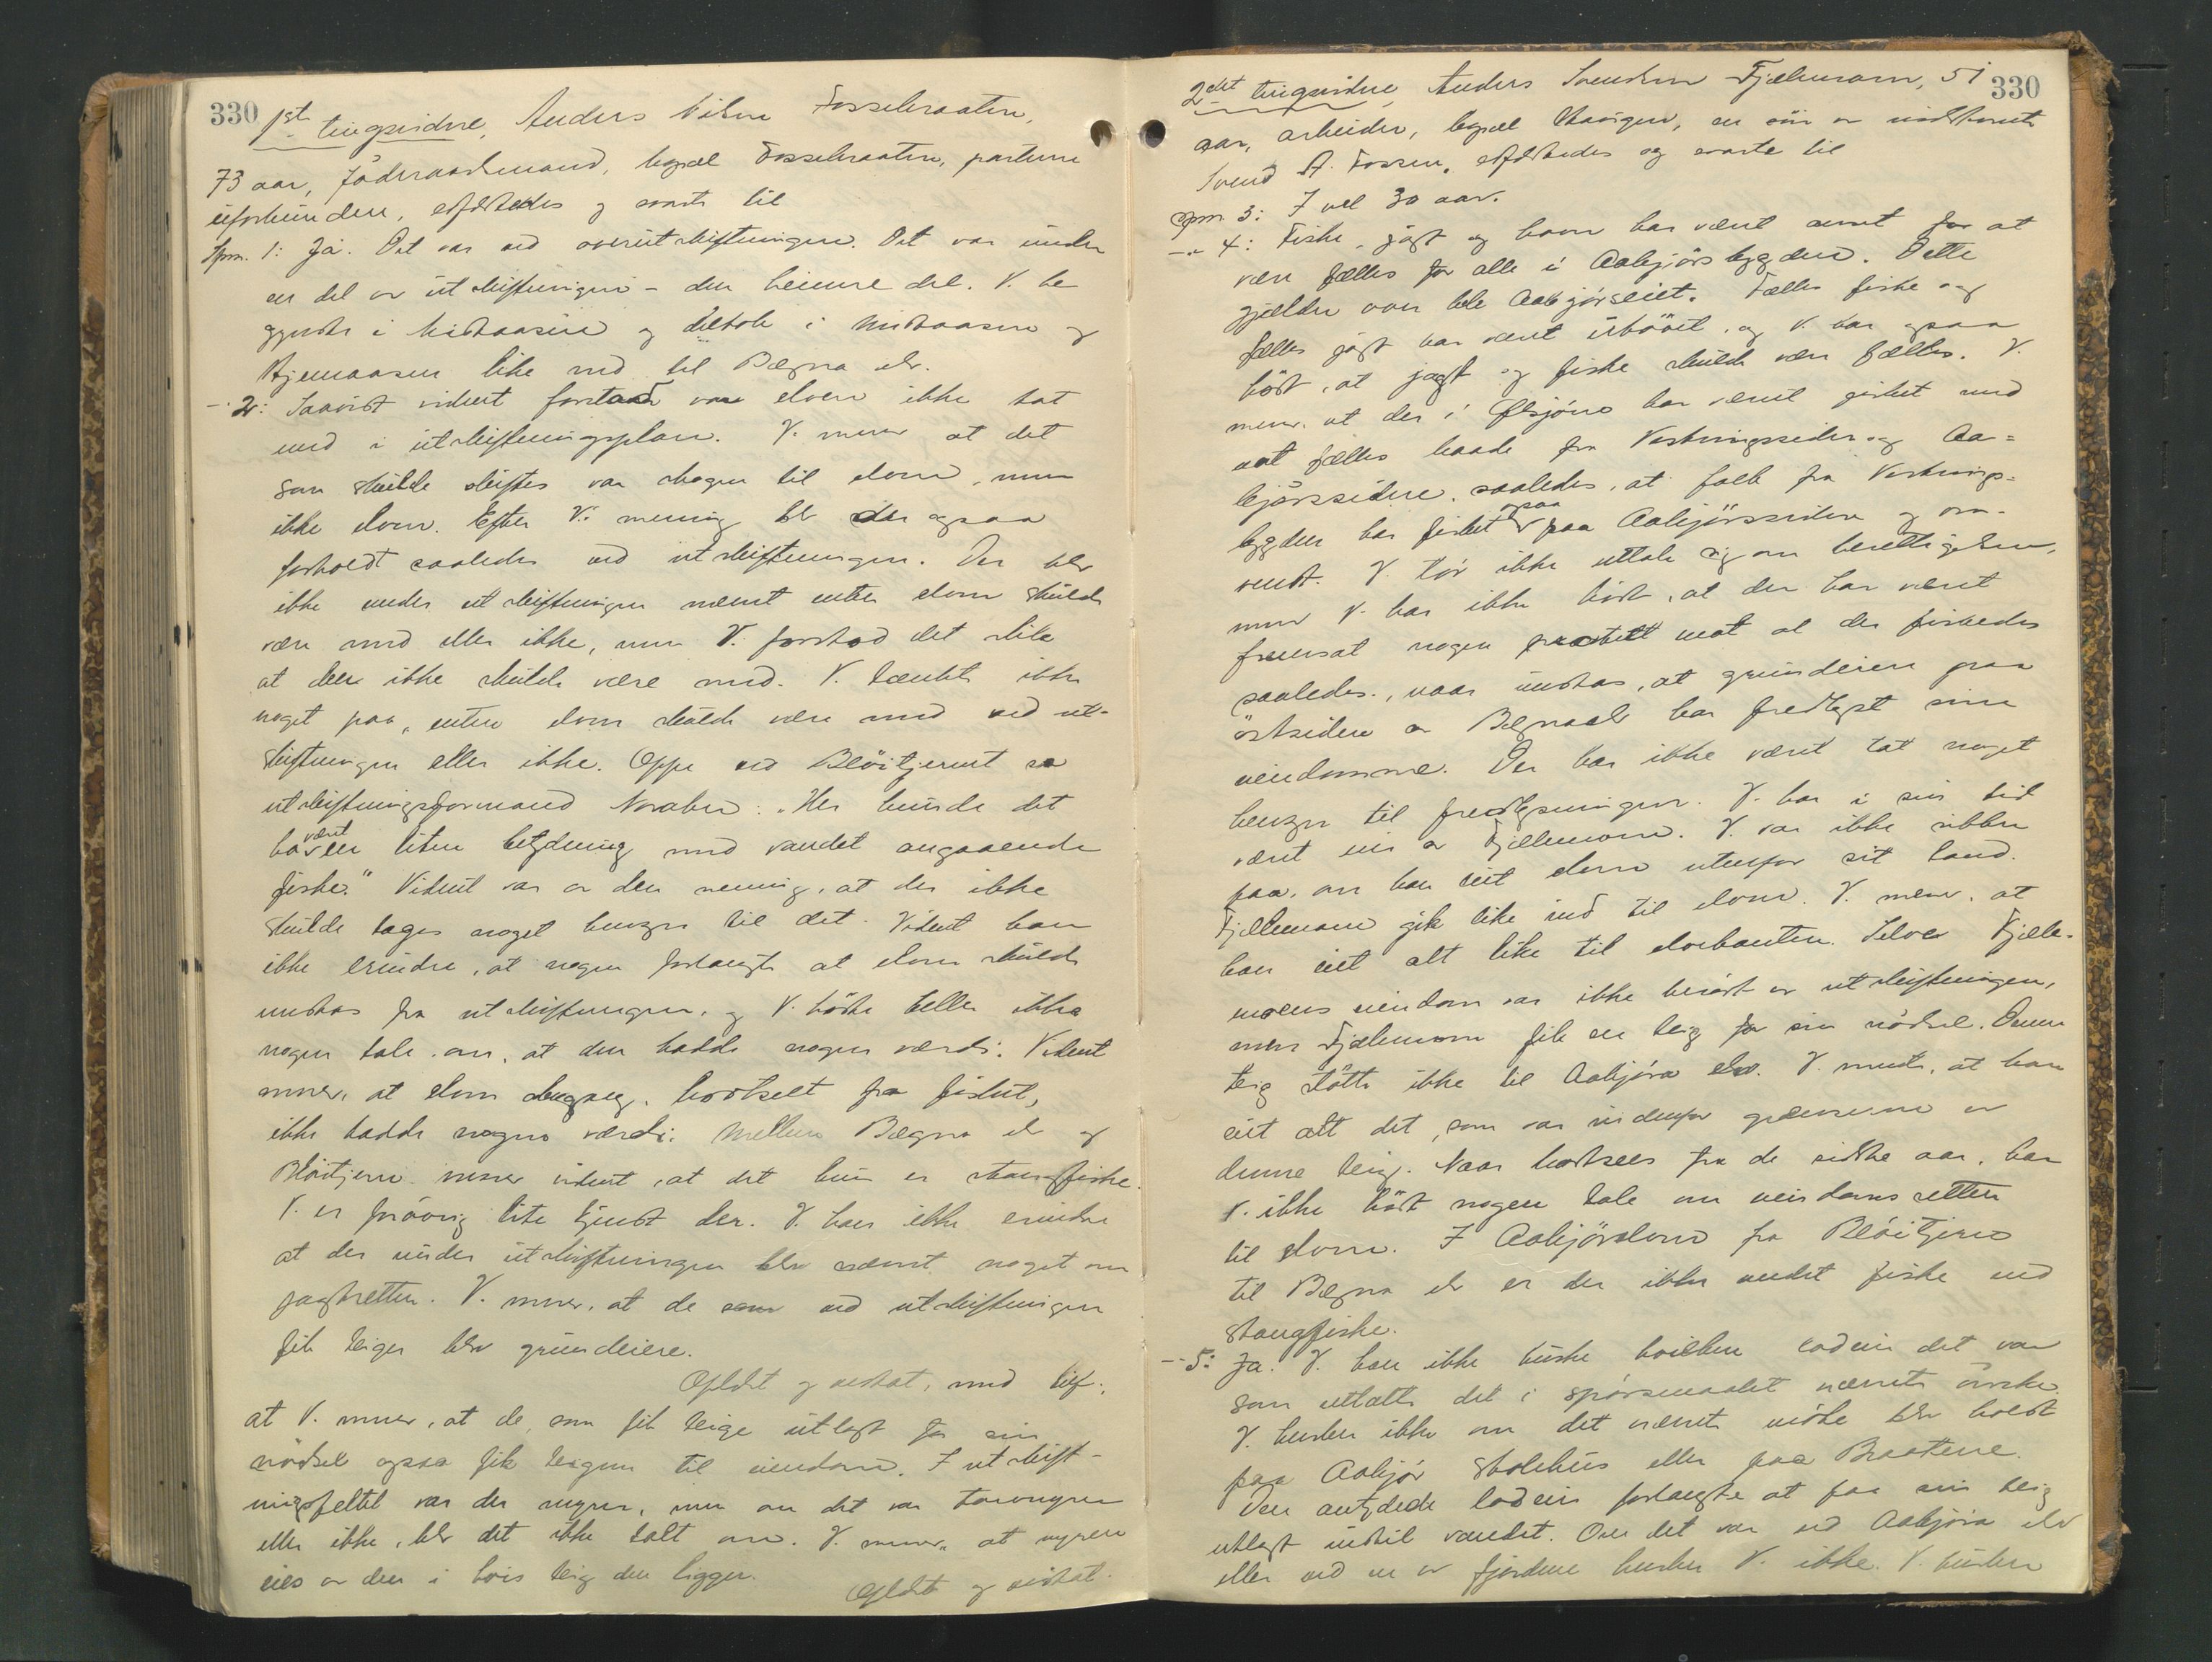 330
1st tingsvidne, Anders Nilsen Fossebraaten,
73 aar, föderaadsmand, bopæl Fossebraaten, parterne
uforbunden, edfæstedes og svarte til
Spm. 1: Ja. Det var ved overutskiftningen. Det var under
en del av utskiftningen – den heimre del. V. be
gyndte i og deltok i Midtaasen og
like ned til Bægna elv.
-"- 2: Saavidt vidnet forstaar var elven ikke tat
med i utskiftningsplan. V. mener at det
som skulde skiftes var skogen til elven, men
ikke elven. Efter V.s mening blev der ogsaa
forholdt saaledes ved utskiftningen. Der blev
ikke under utskiftningen nævnt enten elven skulde
være med eller ikke, men V. forstod det slik
at den ikke skulde være med. V. tænkte ikke
noget paa, enten elven skulde være med ved ut-
skiftningen eller ikke. Oppe ved Blöitjernet sa
utskiftningsformand : "Her kunde det
ha været en liten betydning med vandet angaaende
fiske." Vidnet var av den mening, at der ikke
skulde tages noget hensyn til det. Vidnet kan
ikke erindre, at nogen forlangte at elven skulde
undtas fra utskiftningen, og V. hörte heller ikke
nogen tale om, at den hadde nogen værdi. Vidnet
mener, at elven dengang, bortset fra fisket,
ikke hadde nogen værdi. Mellem Bægna elv og
Blöitjern mener vidnet, at det kun er stangfiske.
V. er forövrig lite kjendt der. V. kan ikke erindre
at der under utskiftningen blev nævnt noget om
jagtretten. V. mener, at de som ved utskiftningen
fik teiger blev grundeiere.
Oplæst og vedtat, med tilf.,
at V. mener, at de, som fik teige utlagt for sin
nödsel ogsaa fik teigene til eiendom. I utskift-
ningsfeltet var der myrer, men om det var torvmyrer
eller ikke, blev det ikke talt om. V. mener, at myren
eies av den i hvis teig den ligger.
Oplæst og vedtat.
330
2det tingsvidne, Anders Svendsen Fjellmoen, 51
aar, arbeider, bopæl , en sön av medstevnte
Svend A. Fossen, edfæstedes og svarte til
Spm 3: I vel 30 aar.
-"- 4: Fiske, jagt og havn har været anset for at
være fælles for alle i Aabjörsbygden. Dette
gjælder over hele Aabjörseiet. Fælles fiske og
fælles jagt har været utövet, og V. har ogsaa
hört, at jagt og fiske skulde være fælles. V.
mener, at der i Ölsjöen har været fisket med
nat fælles baade fra Vestringssiden og Aa=
björssiden, saaledes, at folk fra Vestrings=
bygden har fisket ogsaa paa Aabjörssiden og om-
vendt. V. tör ikke uttale sig om berettigelsen,
men V. har ikke hört, at der har været
fremsat nogen protest mot at der fiskedes
saaledes, naar undtas, at grundeieren paa
östsiden av Bægnaelv har fredlyst sine
eiendomme. Der har ikke været tat noget
hensyn til fredlysningen. V. har i sin tid
været eier av Fjellmoen. V. var ikke sikker
paa, om han eiet elven utenfor sit land.
Fjellmoen gik like ned til elven. V. mener, at
han eiet alt like til elvekanten. Selve Fjell-
moens eiendom var ikke berört av utskiftningen,
men Fjellmoen fik en teig for sin nödsel. Denne
teig stötte ikke til Aabjöra elv. V. mente, at han
eiet alt det, som var indenfor grænserne av
denne teig. Naar bortsees fra de sidste aar, har
V. ikke hört nogen tale om eiendomsretten
til elven. I Aabjörselven fra Blöitjern
til Bægna elv er der ikke andet fiske end
stangfiske.
-"- 5: Ja. V. kan ikke huske hvilken lodeier det var
som uttalte det i spörsmaalet nævnte önske.
V. husker ikke om det nævnte möte blev holdt
paa Aabjör skolehus eller paa Braatene.
Den antydede lodeier forlangte at faa sin teig
utlagt indtil vandet. Om det var ved Aabjöra elv
eller ved en av fjordene husker V. ikke. V. husker